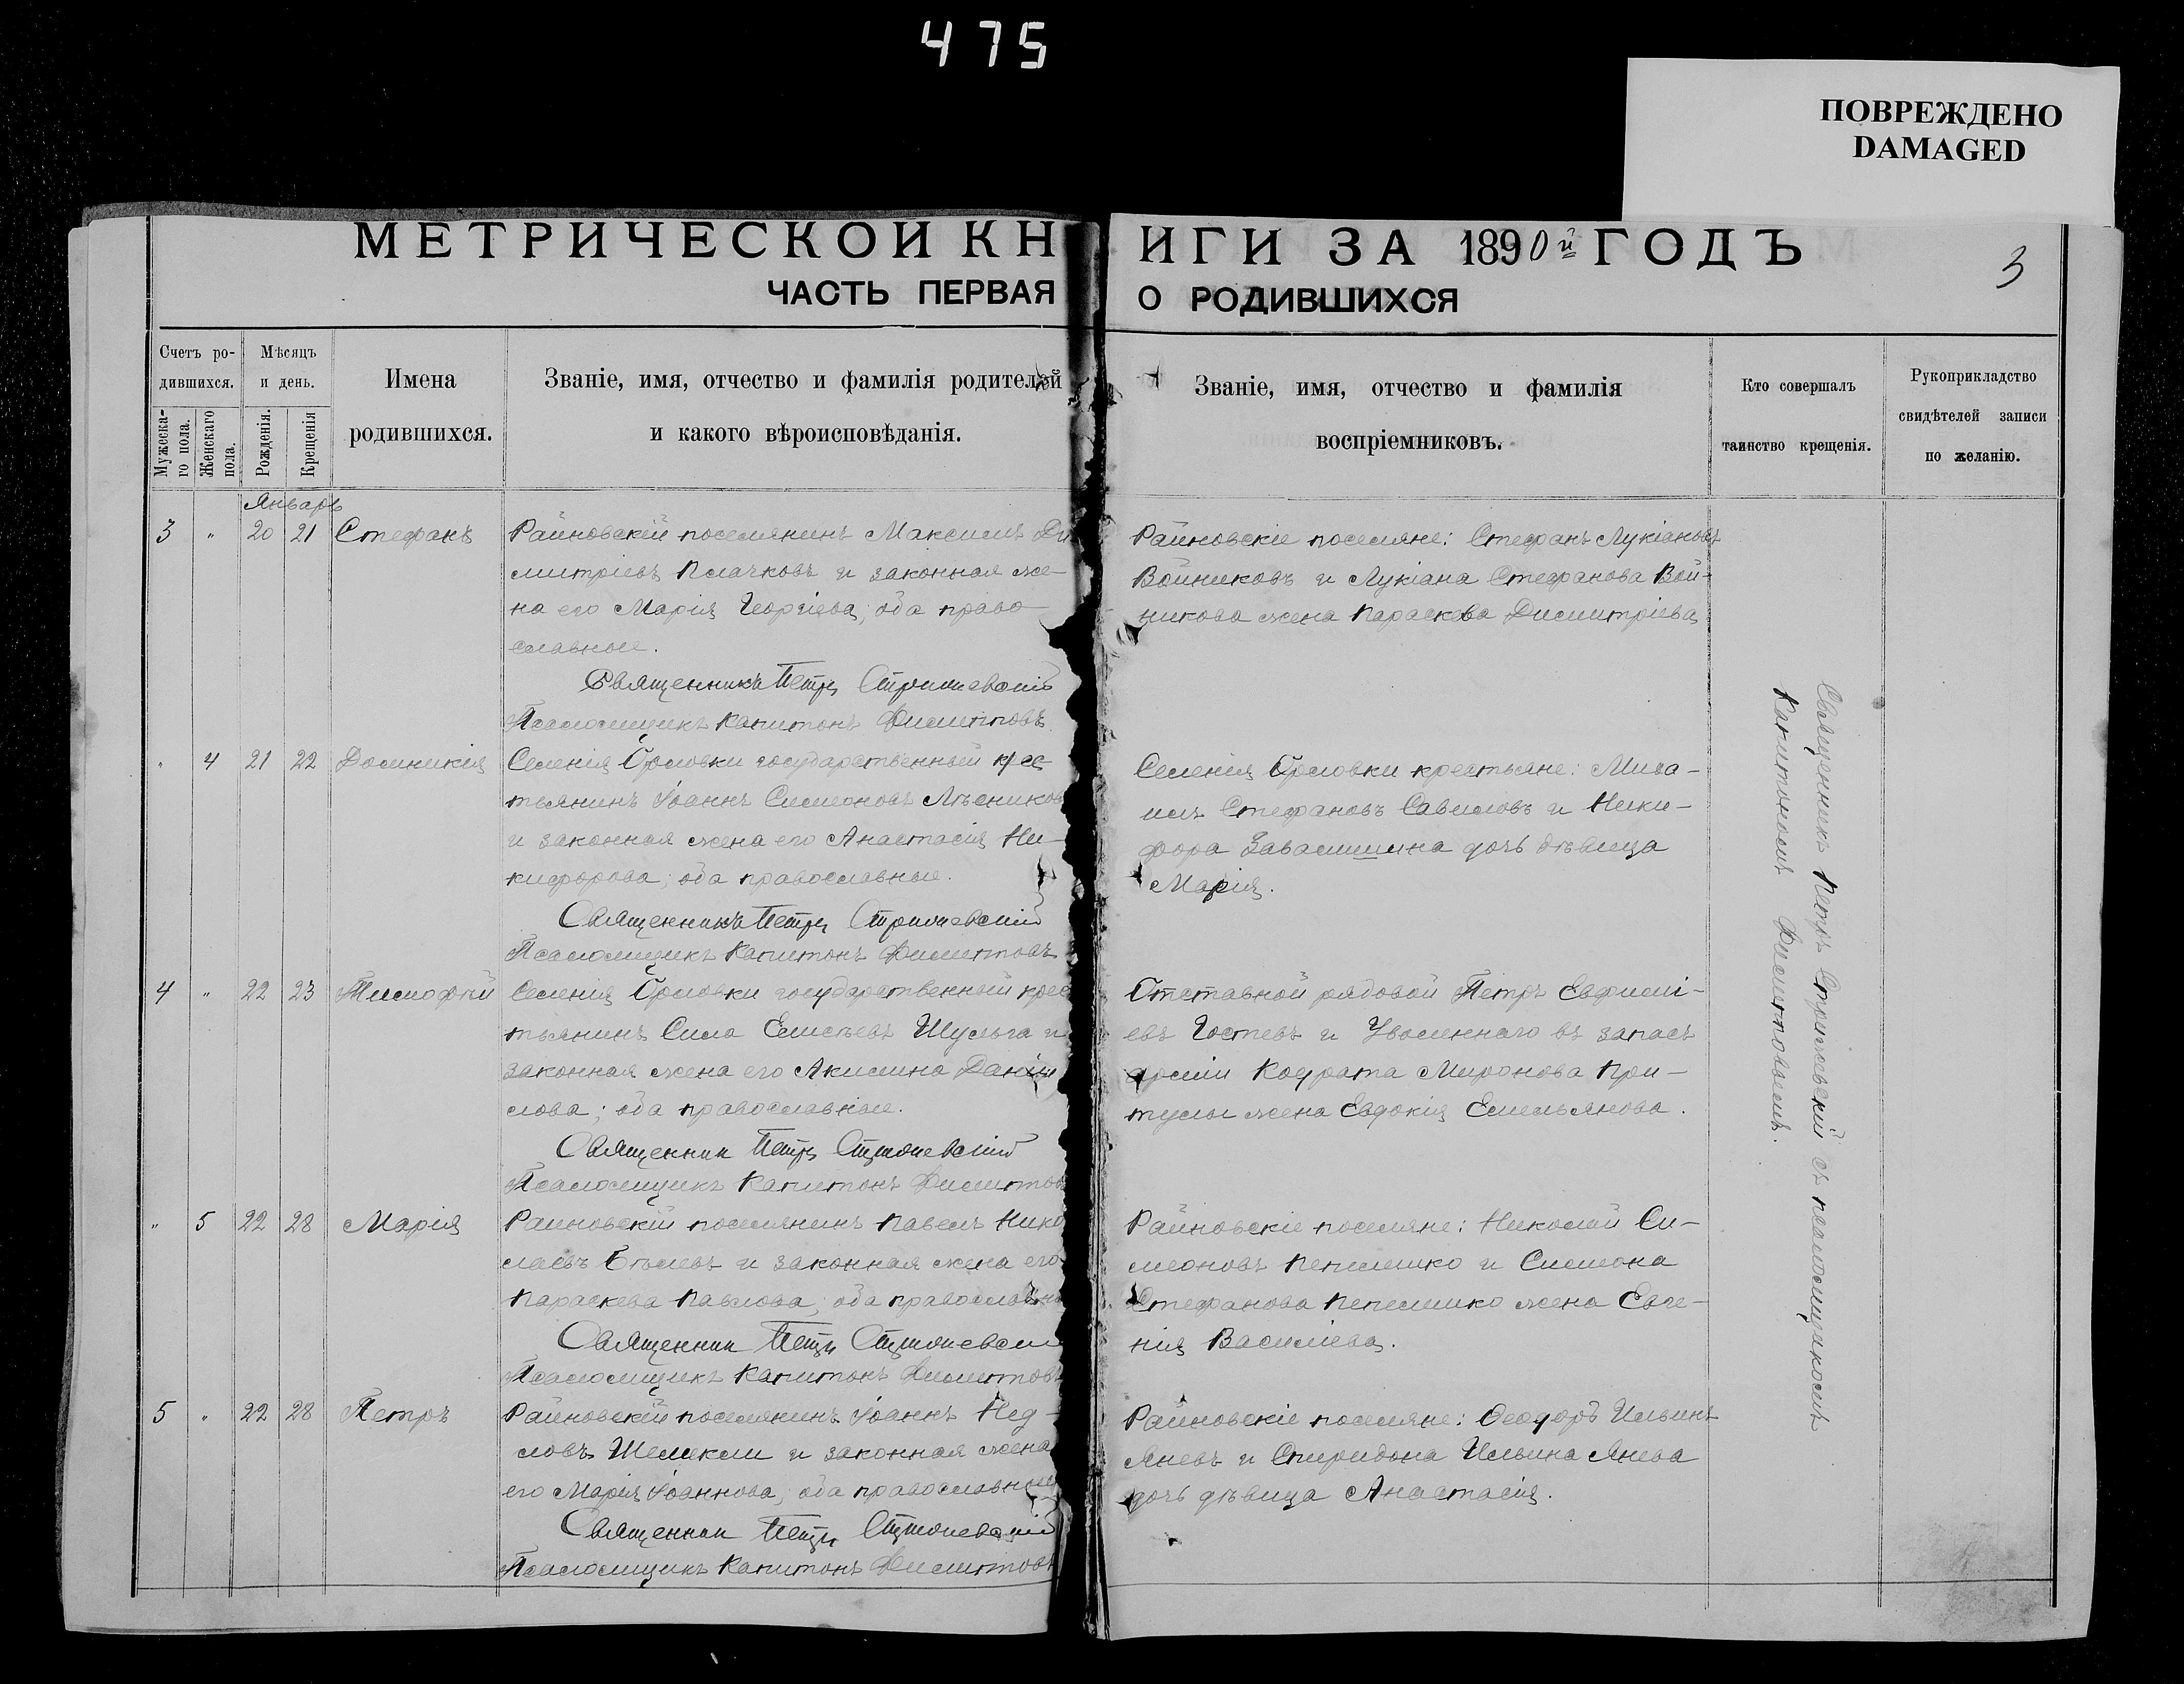 475
ПОВРЕЖДЕНО
DAMAGED
МЕТРИЧЕСКОЙ КН
ИГИ ЗА 1890й ГОДЪ
3
ЧАСТЬ ПЕРВАЯ
О РОДИВШИХСЯ
Счетъ ро-
дившихся.
Мужеска-
го пола.
Женскаго
пола.
Мѣсяцъ
и день.
Рожденія.
Крещенія
Имена
родившихся.
Званіе, имя, отчество и фамилія родителей
и какого вѣроисповѣданія.
Званіе, имя, отчество и фамилія
воспріемниковъ.
Кто совершалъ
таинство крещенія.
Рукоприкладство
свидѣтелей записи
по желанію.
Январь
3 " 20 21 Стефанъ
Райновскій поселянинъ Максимъ Ди
митріевъ Плачковъ и законная же-
на его Марія Георгіева, оба право-
славные.
Священникъ Петръ Стрижевскій
Псаломщикъ Капитонъ Филипповъ
Райновскіе поселяне: Стефанъ Лукіановъ
Войниковъ и Лукіана Стефанова Вой-
никова жена Параскева Димитріева
" 4 21 22 Домникія
Селенія Орловки государственный крес
тьянинъ Іоаннъ Симеоновъ Лѣсниковъ
и законная жена его Анастасія Ни-
кифорова, оба православные.
Священникъ Петръ Стрижевскій
Псаломщикъ Капитонъ Филипповъ
Селенія Орловки крестьяне: Миха-
илъ Стефановъ Савиловъ и Ники-
фора Завалишина дочь дѣвица
Марія.
4 " 22 23 Тимофей
Селенія Орловки государственный крес
тьянинъ Сила Елисѣевъ Шульга и
законная жена его Акилина Даніи
лова; оба православные.
Священник Петръ Стрижевскій
Псаломщикъ Капитонъ Филиппов
Отставной рядовой Петръ Евфимі-
евъ Гостевъ и Уволеннаго въ запасъ
арміи Кодрата Миронова При-
тулы жена Евдокія Емельянова.
" 5 22 28 Марія
Райновскій поселянинъ Павелъ Нико
лаевъ Бѣлевъ и законная жена его
Параскева Павлова, оба православны
Священник Петръ Стрижевскі
Псаломщикъ Капитонъ Филипповъ
Райновскіе поселяне: Николай Си-
меоновъ Пепелешко и Симеона
Стефанова Пепелешко жена Евге-
нія Василіева.
5 " 22 28 Петръ
Райновскій поселянинъ Іоаннъ Нед-
ловъ Шемекли и законная жена
его Марія Іоаннова, оба православные
Священник Петръ Стрижевскій
Псаломщикъ Капитонъ Филипповъ
Райновскіе поселяне: Ѳеодоръ Ильинъ
Яневъ и Спиридона Ильина Янева
дочь дѣвица Анастасія.
Священникъ Петръ Стрижевскій съ псаломщикомъ
Капитономъ Филипповымъ.